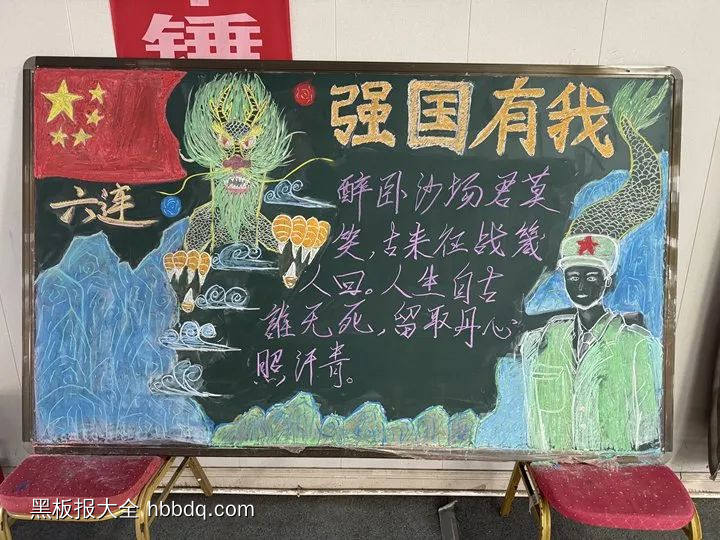 锤
强国有我
六连
醉卧沙场君莫
笑,古来征战几
人回。人生自古
誰无死,留取丹心
照汗青。
黑板报大全 hbbdq.com